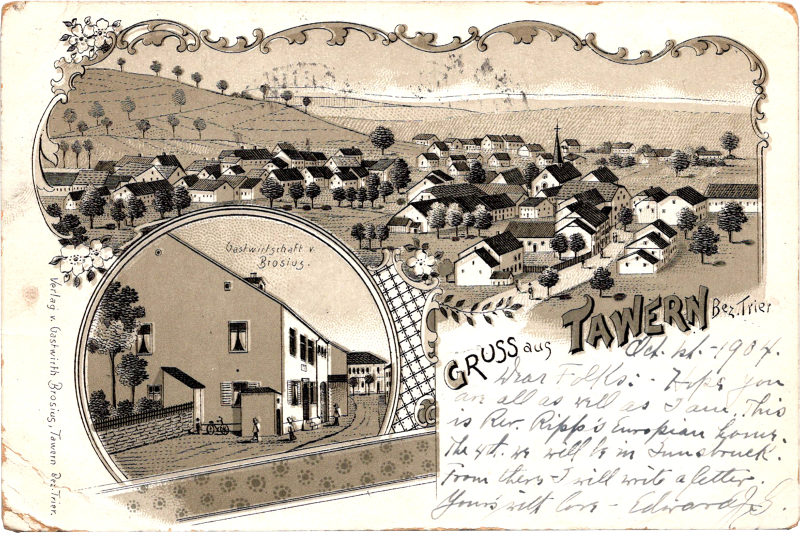 Gastwirtschaft v.
Brosius.
GRUSS aus TAWERN Bez. Trier
Verlag v. Gastwirth Brosius, Tawern Bez. Trier.
Oct. 1st - 1904.
Dear Folks:- Hope you
are all as well as I am. This
is Rev. Ripp's Europian home.
The 4t. we will be in Innsbruck.
From there I will write a letter.
Yours with love - Edward J. G.